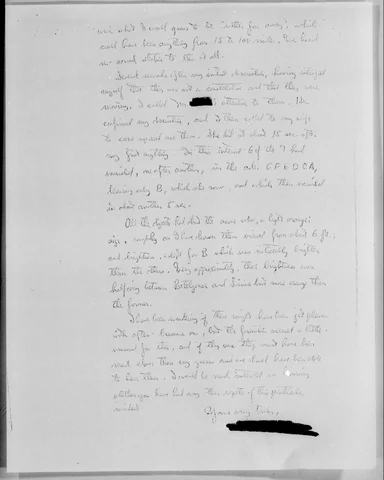 me what I would guess to be "rather far away", which
could have been anything from 15 to 100 miles. We heard
no sound
Several seconds after my initial observation, having satisfied
myself that this was not a constellation and that they were
moving, I called attention to them. He
confirmed my observation, and I then called to my wife
to come out and see them. She did so about 15 sec. after
my first sighting. In this interval 6 of the 7 had
vanished, one after another, in the order G F E D C A,
leaving only B, which she saw, and which then vanished
in about another 5 sec.
All the objects had about the same colour, a light orange;
size, roughly as I have shown them viewed from about 6 ft.;
and brightness, except for B which was noticeably brighter
than the others. Very approximately, their brightness was
halfway between Betelgeuse and Sirius but more orange than
the former.
I have been wondering if these might have been jet planes
with after-burners on, but the formation seemed a little
unusual for this, and if they were they must have been
much closer than my guess and we should have been able
to hear them. I would be much interested in knowing
whether you have had any other reports of this particular
incident.
Yours very truly,